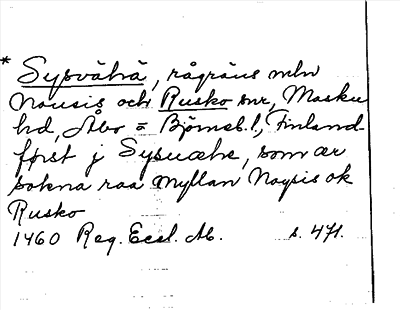 * Sysvähä, rågräns mln
Nousis och Rusko snr, Masku
hd, Åbo = Björneb. l., Finland.
fförst j Sysuæhe, som ær
sokna raa myllan Noysis ok
Rusko
1460 Reg. Eccl. Ab. s. 471.